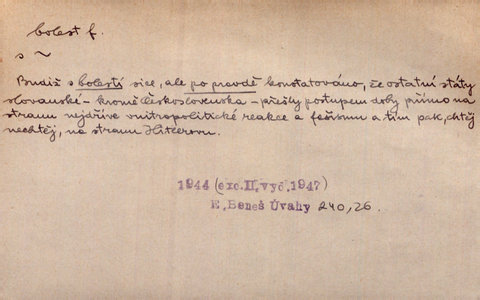 bolest f.
s ~
Budiž s bolestí sice, ale po pravdě konstatováno, že ostatní státy
slovanské – kromě Československa – přešly postupem doby přímo na
stranu nejdříve vnitropolitické reakce a fašismu a tím pak, chtěj
nechtěj, na stranu Hitlerovu.
1944 (exc.II.vyd.1947)
E.Beneš Úvahy 240,26.